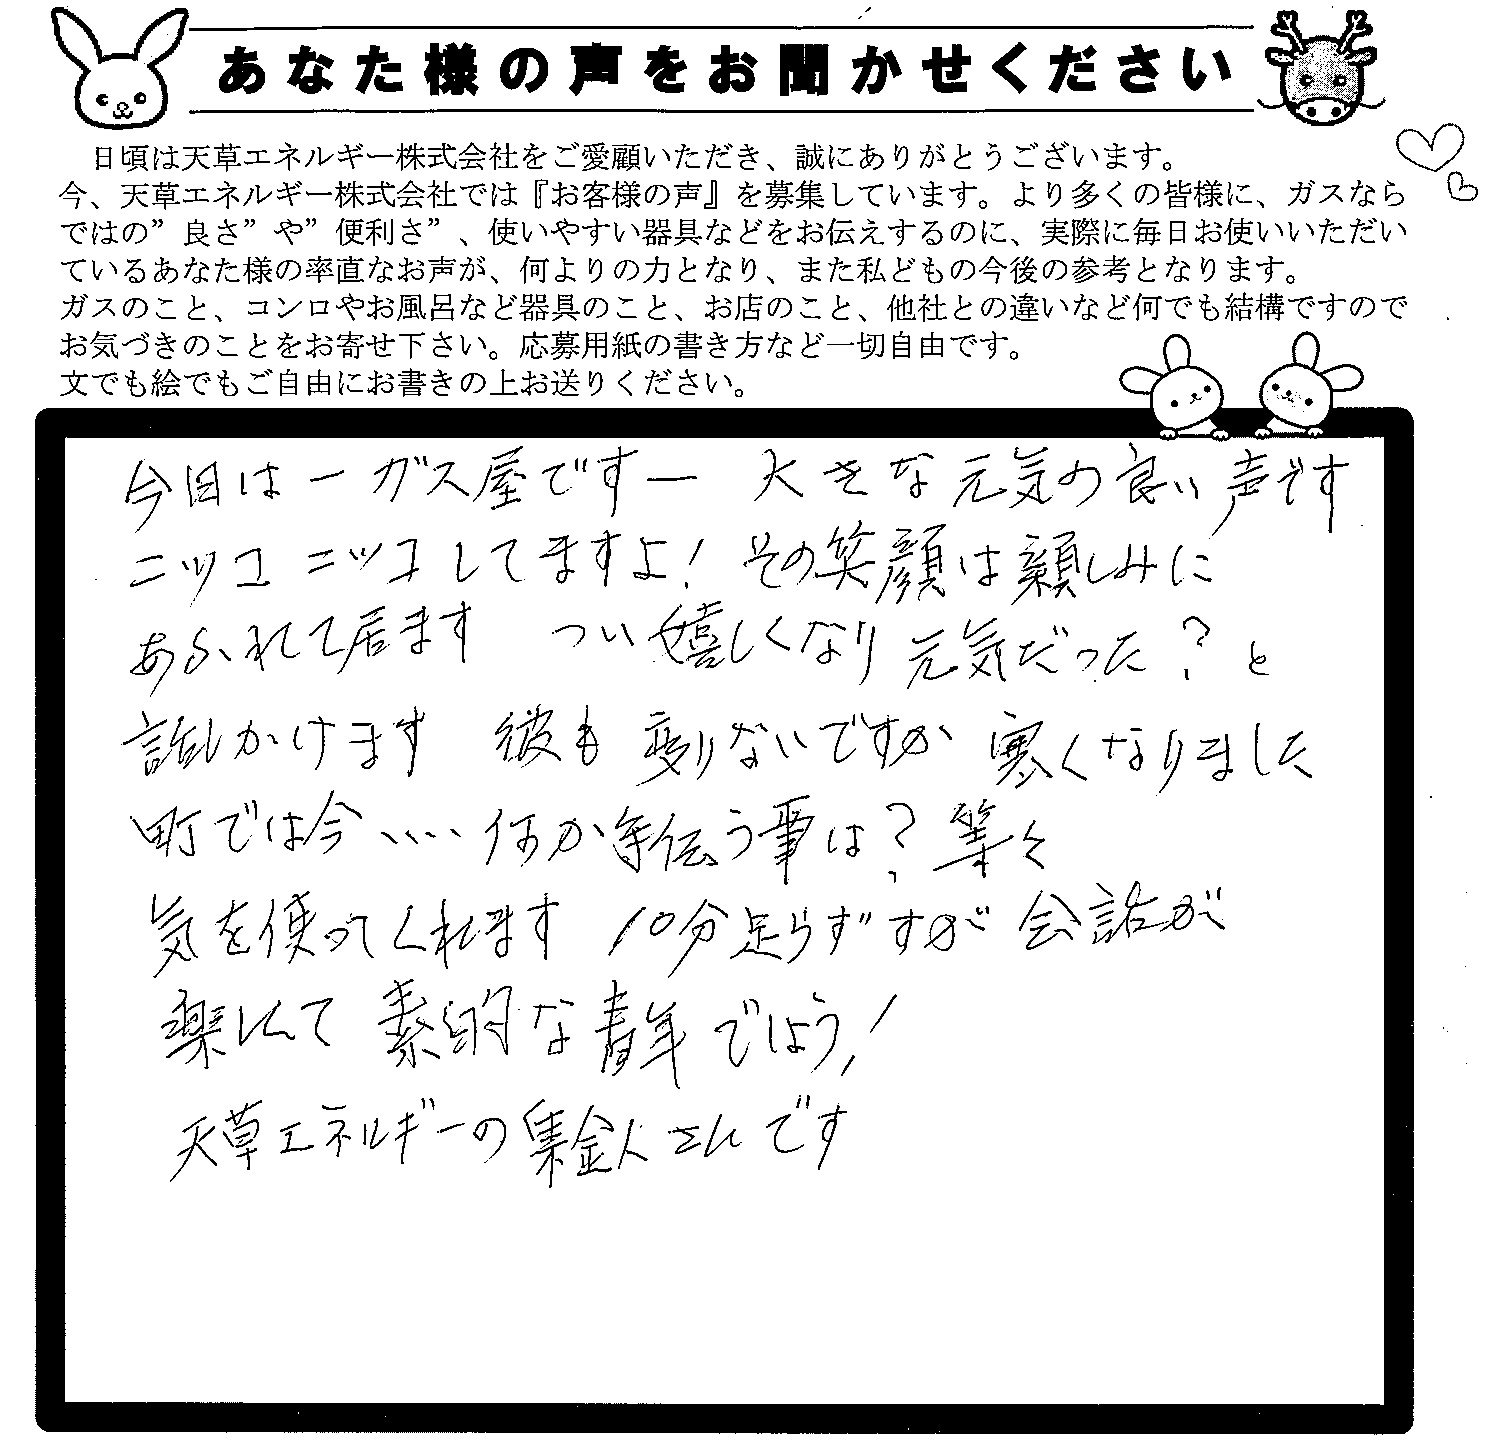 あなた様の声をお聞かせください
日頃は天草エネルギー株式会社をご愛顧いただき、誠にありがとうございます。
今、天草エネルギー株式会社では『お客様の声』を募集しています。より多くの皆様に、ガスなら
ではの”良さ”や”便利さ”、使いやすい器具などをお伝えするのに、実際に毎日お使いいただい
ているあなた様の率直なお声が、何よりの力となり、また私どもの今後の参考となります。
ガスのこと、コンロやお風呂など器具のこと、お店のこと、他社との違いなど何でも結構ですので
お気づきのことをお寄せ下さい。応募用紙の書き方など一切自由です。
文でも絵でもご自由にお書きの上お送りください。
今日はーガス屋ですー 大きな元気の良い声です
ニッコニッコしてますよ！その笑顔は親しみに
あふれて居ます つい嬉しくなり元気だった？と
話しかけます 彼も変りないですか 寒くなりました
町では今、、、、何か手伝う事は？等々
気を使ってくれます 10分足らずすが会話が
楽しくて素的な青年でしょう！
天草エネルギーの集金人さんです